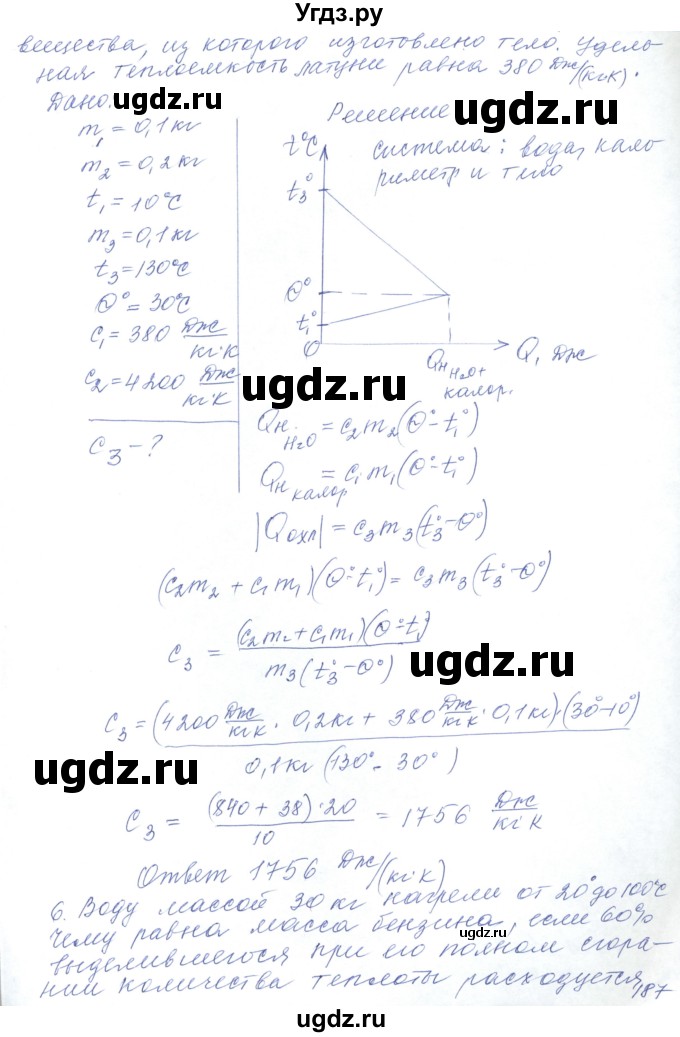 Угдз.ру
вещества, из которого изготовлено тело. Удель-
ная теплоемкость латуни равна 380 Дж/(кг·К).
Дано:
Решение
m₁ = 0,1 кг
m₂ = 0,2 кг
t₁ = 10°C
m₃ = 0,1 кг
t₃ = 130°C
Θ° = 30°C
c₁ = 380 Дж/кг·К
c₂ = 4200 Дж/кг·К
c₃ - ?
система: вода, кало-
риметр и тело
t°C
t₃°
Θ°
t₁°
0
Qн H₂O+ калор.
Q, Дж
Qн H₂O = c₂m₂(Θ° - t₁°)
Qн калор = c₁m₁(Θ° - t₁°)
|Qохл| = c₃m₃(t₃° - Θ°)
(c₂m₂ + c₁m₁)(Θ° - t₁°) = c₃m₃(t₃° - Θ°)
c₃ = (c₂m₂ + c₁m₁)(Θ° - t₁°) / m₃(t₃° - Θ°)
c₃ = (4200 Дж/кг·К · 0,2 кг + 380 Дж/кг·К · 0,1 кг)·(30° - 10°) / 0,1 кг (130° - 30°)
c₃ = (840 + 38)·20 / 10 = 1756 Дж/кг·К
Ответ 1756 Дж/(кг·К)
6. Воду массой 30 кг нагрели от 20° до 100°C
Чему равна масса бензина, если 60%
выделившегося при его полном сгора-
нии количества теплоты расходуется
187
ugdz.ru
ugdz.ru
ugdz.ru
ugdz.ru
ugdz.ru
ugdz.ru
ugdz.ru
ugdz.ru
ugdz.ru